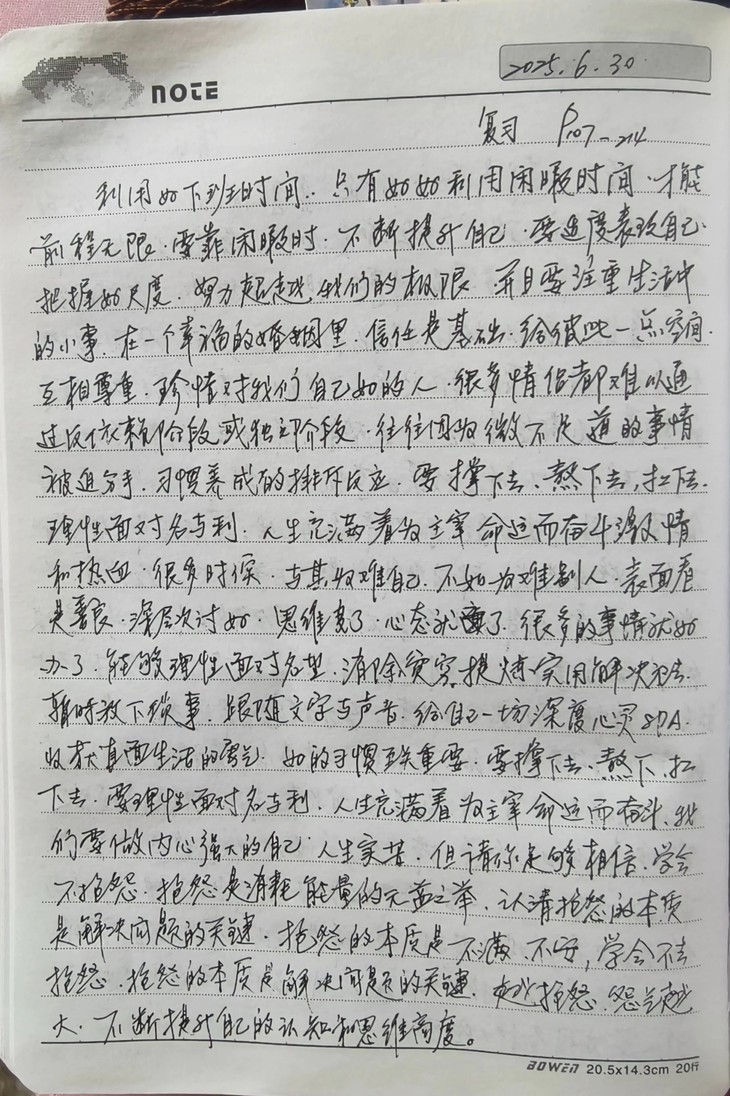 NOTE
2025.6.30
复习 P107-214
利用好下班时间. 只有好好利用闲暇时间.才能
前程无限. 要靠闲暇时.不断提升自己.要适度表现自己.
把握好尺度.努力超越我们的极限 并且要注重生活中
的小事.在一个幸福的婚姻里.信任是基础.给彼此一点空间.
互相尊重.珍惜对我们自己好的人.很多情侣都难以通
过反依赖阶段或独立阶段.往往因为微不足道的事情
被迫分手.习惯养成有的排斥反应.要撑下去、熬下去,扛下去.
理性面对名与利.人生充满着为主宰命运而奋斗激情
和热血.很多时候.与其为难自己.不如为难别人.表面看
是善良.深层次讨好.思维变了.心态就变了.很多的事情就好
办了.能够理性面对名望.消除贫穷.提炼实用解决办法.
暂时放下琐事.跟随文字与声音.给自己一切深度心灵SPA.
收获直面生活的勇气.好的习惯至关重要.要撑下去.熬下.扛
下去.要理性面对名与利.人生充满着为主宰命运而奋斗.我
们要做内心强大的自己.人生实苦.但请你足够相信.学会
不抱怨.抱怨是消耗能量的无益之举.认清抱怨的本质
是解决问题的关键.抱怨的本质是不满、不安,学会不去
抱怨.抱怨的本质是解决问题的关键.越抱怨.怨气越
大.不断提升自己的认知和思维高度。
AOWEN 20.5x14.3cm 20行